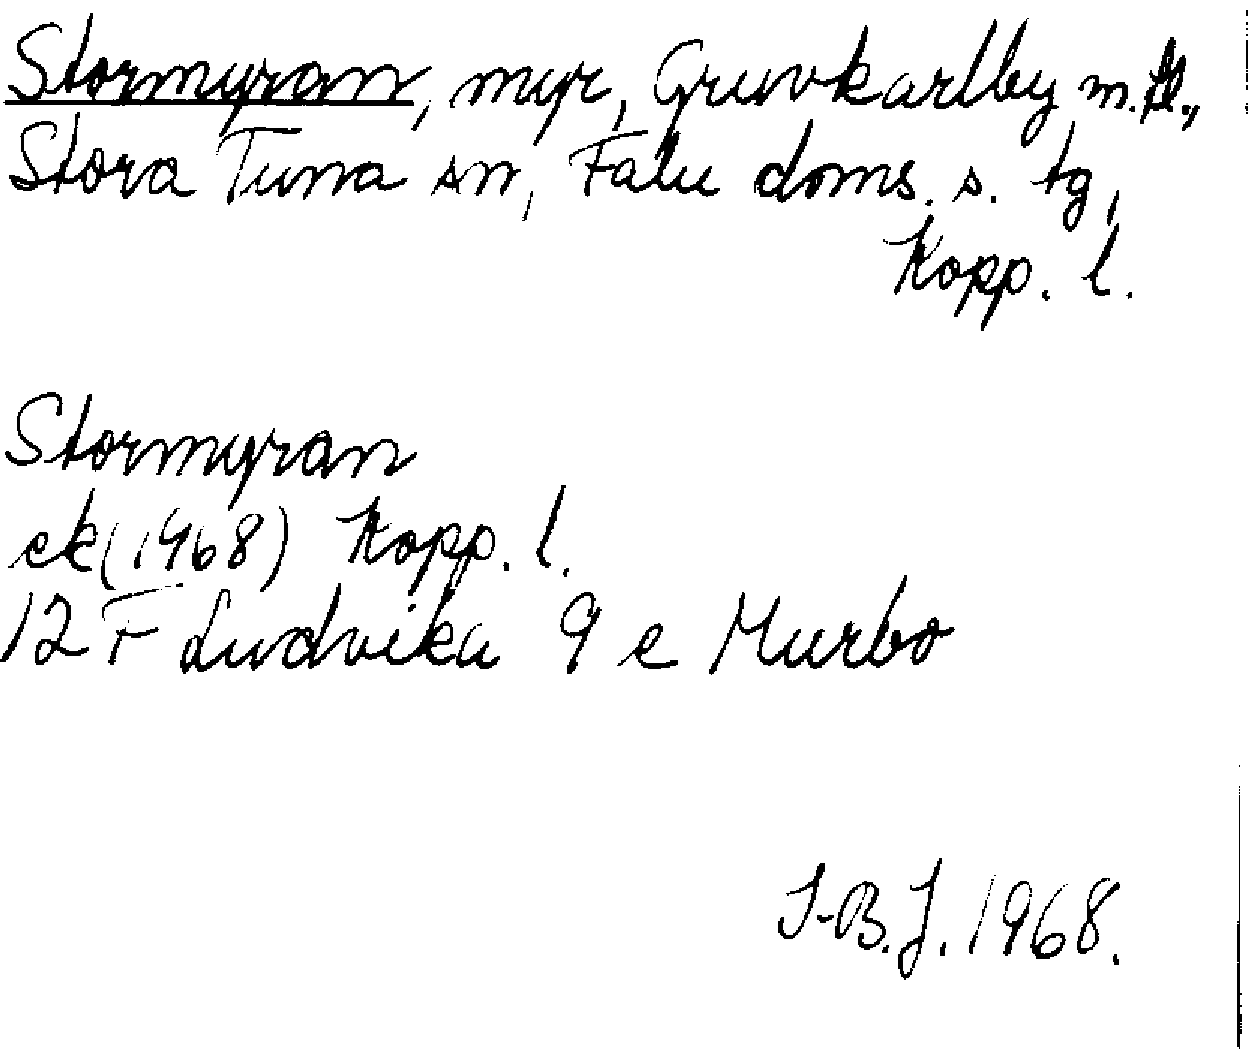 Stormyran, myr, Gruvkarlby m. fl.,
Stora Tuna sn, Falu doms. s. tg,
Kopp. l.
Stormyran
ek (1968) Kopp. l.
12 F Ludvika 9 e Murbo
I-B.J. 1968.